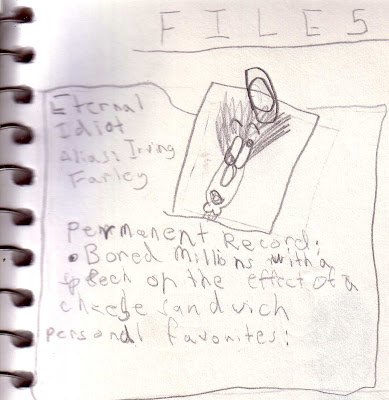 FILES
Eternal
Idiot
Alias: Irving
Farley
Permanent Record:
• Bored millions with a
speech on the effect of a
cheese sandwich
personal favorites: